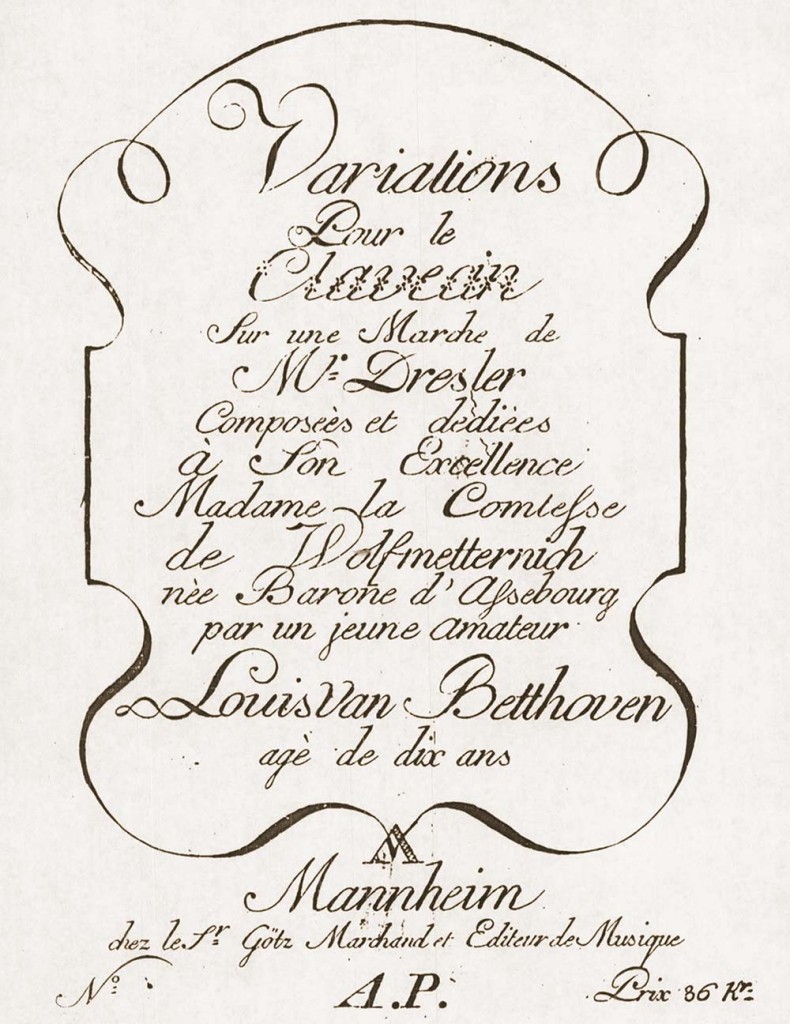 Variations
Pour le
Clavecin
Sur une Marche de
Mr. Dresler
Composèes et dèdièes
à Son Excellence
Madame la Comtesse
de Wolfmetternich
nèe Barone d'Assebourg
par un jeune amateur
Louis van Betthoven
agè de dix ans
Mannheim
chez le Sr. Götz Marchand et Editeur de Musique
No. A.P. Prix 36 Kr.